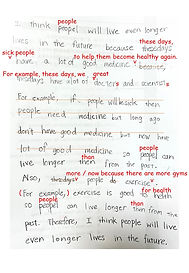 people
I think peopel will live even longer
these days,
lives in the future because thesdays
sick people to help them become healthy again.
have a lot of good medicine because,
For example, these days, we great
thesdays have a lot of doctors and scientists
For example, if people will be sick then
people need medicine but long ago
don't have good medicine but now have
lot of good medicine so peopel can
people
than
live longer then from the past.
more / now because there are more gyms
Also, thesdays people do exercise
(For example,) exercise is good to health
for health
people than
so peopel can live longer then from the
past. Therefore, I think people will live
even longer lives in the future.